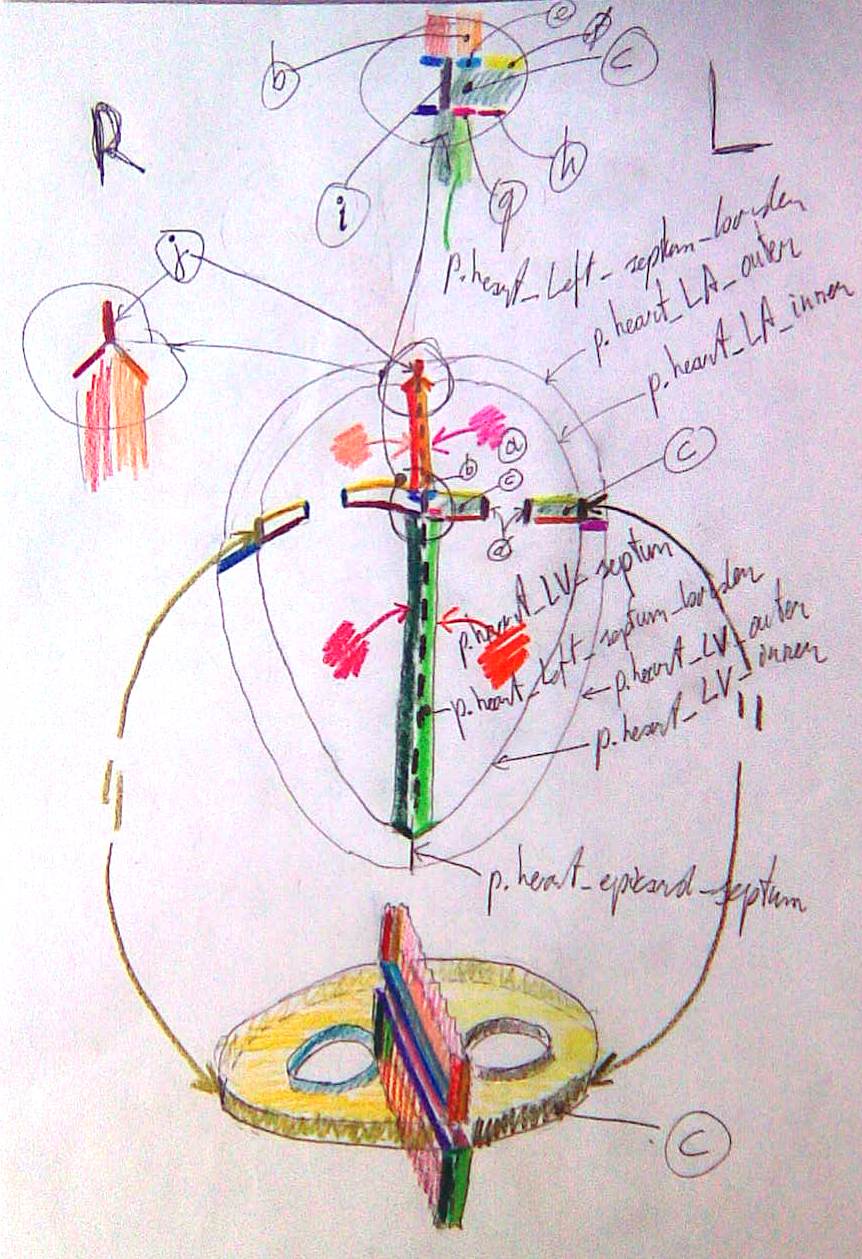 e
f
b
c
R
L
h
i
g
j
p.heart_left_septum_border
p.heart_LA_outer
p.heart_LA_inner
a
c
b
c
d
p.heart_LV_septum
p.heart_left_septum_border
p.heart_LV_outer
p.heart_LV_inner
p.heart_epicard_septum
c